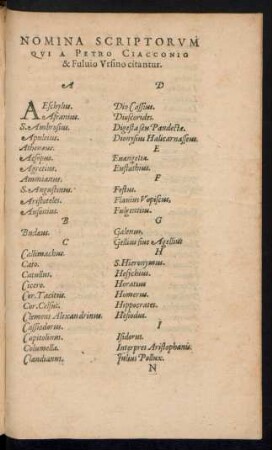 NOMINA SCRIPTORVM
QVI A PETRO CIACCONIO
& Fuluio Vrsino citantur.
A
AEschylus.
Afranius.
S. Ambrosius.
Apuleius.
Athenæus.
Aesopus.
Agrœtius.
Ammianus.
S. Augustinus.
Aristoteles.
Ausonius.
B
Budæus.
C
Callimachus.
Cato.
Catullus.
Cicero.
Cor. Tacitus.
Cor. Celsus.
Clemens Alexandrinus.
Cassiodorus.
Capitolinus.
Columella.
Claudianus.
D
Dio Cassius.
Dioscorides.
Digesta seu Pandectæ.
Dionysius Halicarnasseus.
E
Euangelia.
Eustathius.
F
Festus.
Flauius Vopiscus.
Fulgentius.
G
Galenus.
Gellius siue Agellius
H
S. Hieronymus.
Hesychius.
Horatius
Homerus.
Hippocrates.
Hesiodus.
I
Isidorus.
Interpres Aristophanis.
Iulius Pollux.
N